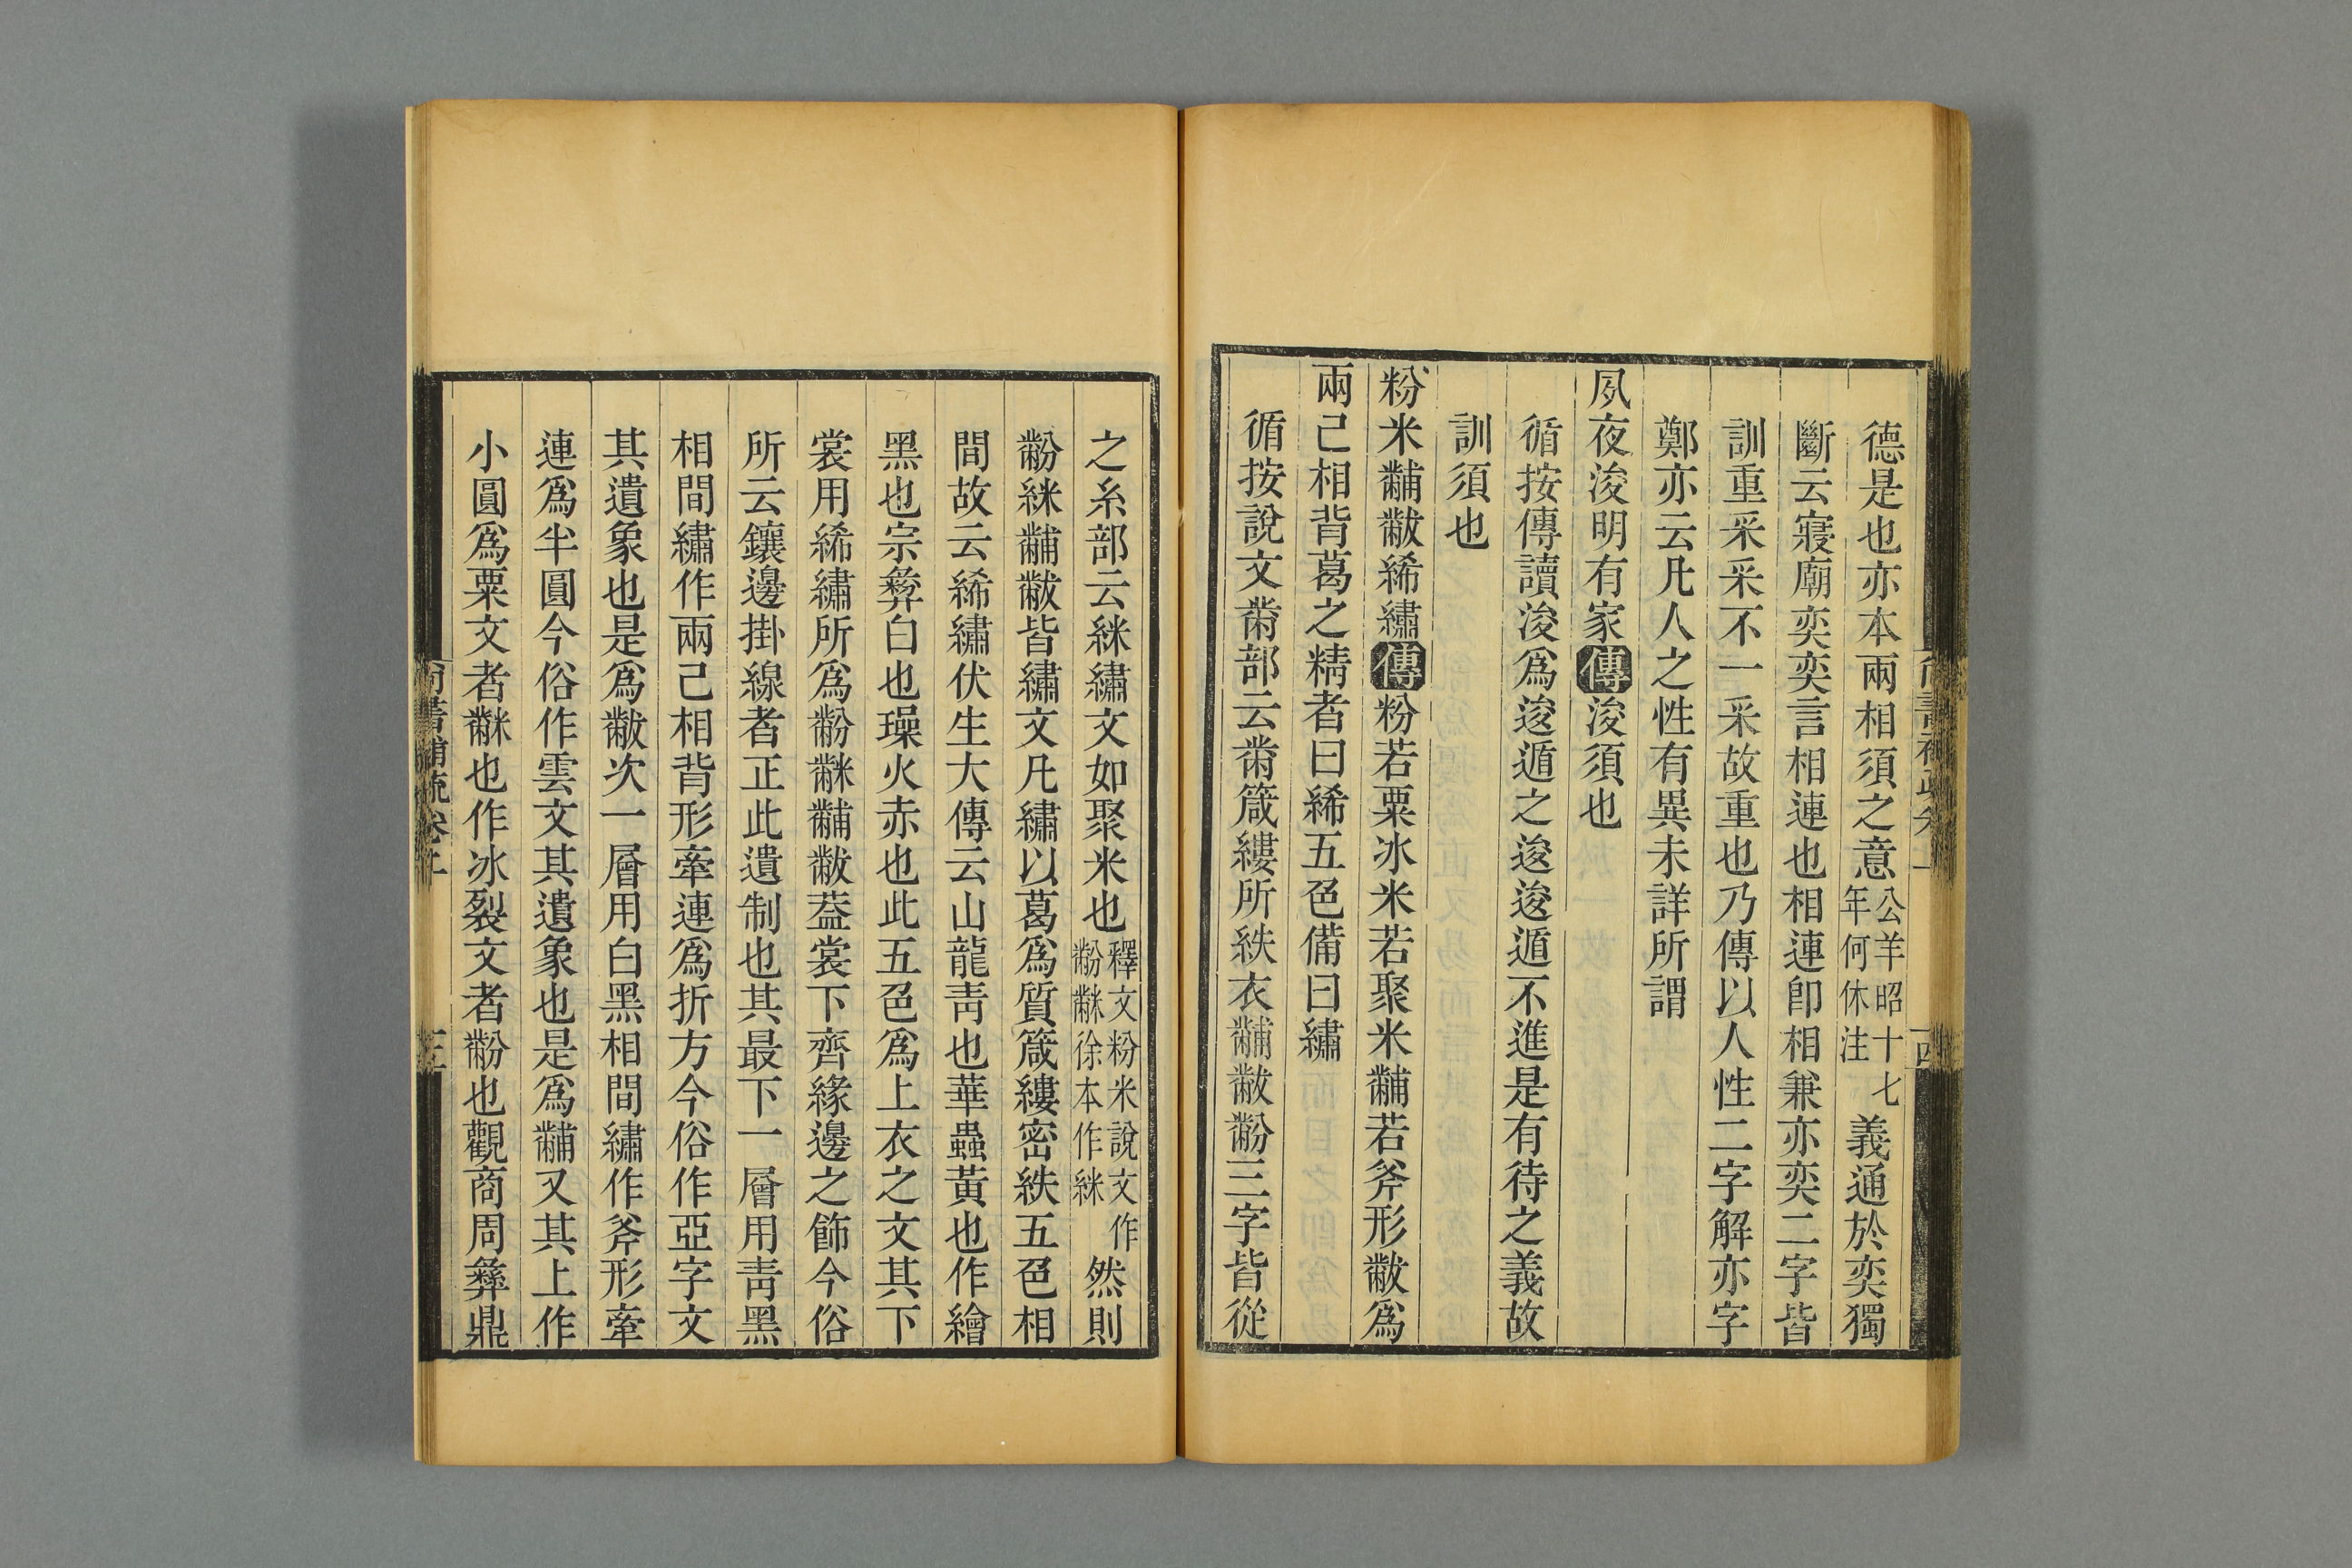 德是也亦本兩相須之意公羊昭十七年何休注義通於奕獨
斷云寢廟奕奕言相連也相連卽相兼亦奕二字皆
訓重采采不一采故重也乃傳以人性二字解亦字
鄭亦云凡人之性有異未詳所謂
夙夜浚明有家傳浚須也
循按傳讀浚爲逡遁之逡逡遁不進是有待之義故
訓須也
粉米黼黻絺繡傳粉若粟冰米若聚米黼若斧形黻爲
兩己相背葛之精者曰絺五色備曰繡
循按說文黹部云黹箴縷所紩衣黼黻黺三字皆從
之糸部云絑繡文如聚米也釋文粉米說文作黺䋛徐本作䋛然則
黺䋛黼黻皆繡文凡繡以葛爲質箴縷密紩五色相
間故云絺繡伏生大傳云山龍靑也華蟲黃也作繪
黑也宗彝白也璪火赤也此五色爲上衣之文其下
裳用絺繡所爲黺䋛黼黻葢裳下齊緣邊之飾今俗
所云鑲邊掛線者正此遺制也其最下一層用靑黑
相間繡作兩己相背形牽連爲折方今俗作亞字文
其遺象也是爲黻次一層用白黑相間繡作斧形牽
連爲半圓今俗作雲文其遺象也是爲黼又其上作
小圓爲粟文者䋛也作冰裂文者黺也觀商周彝鼎
尚書補疏卷上